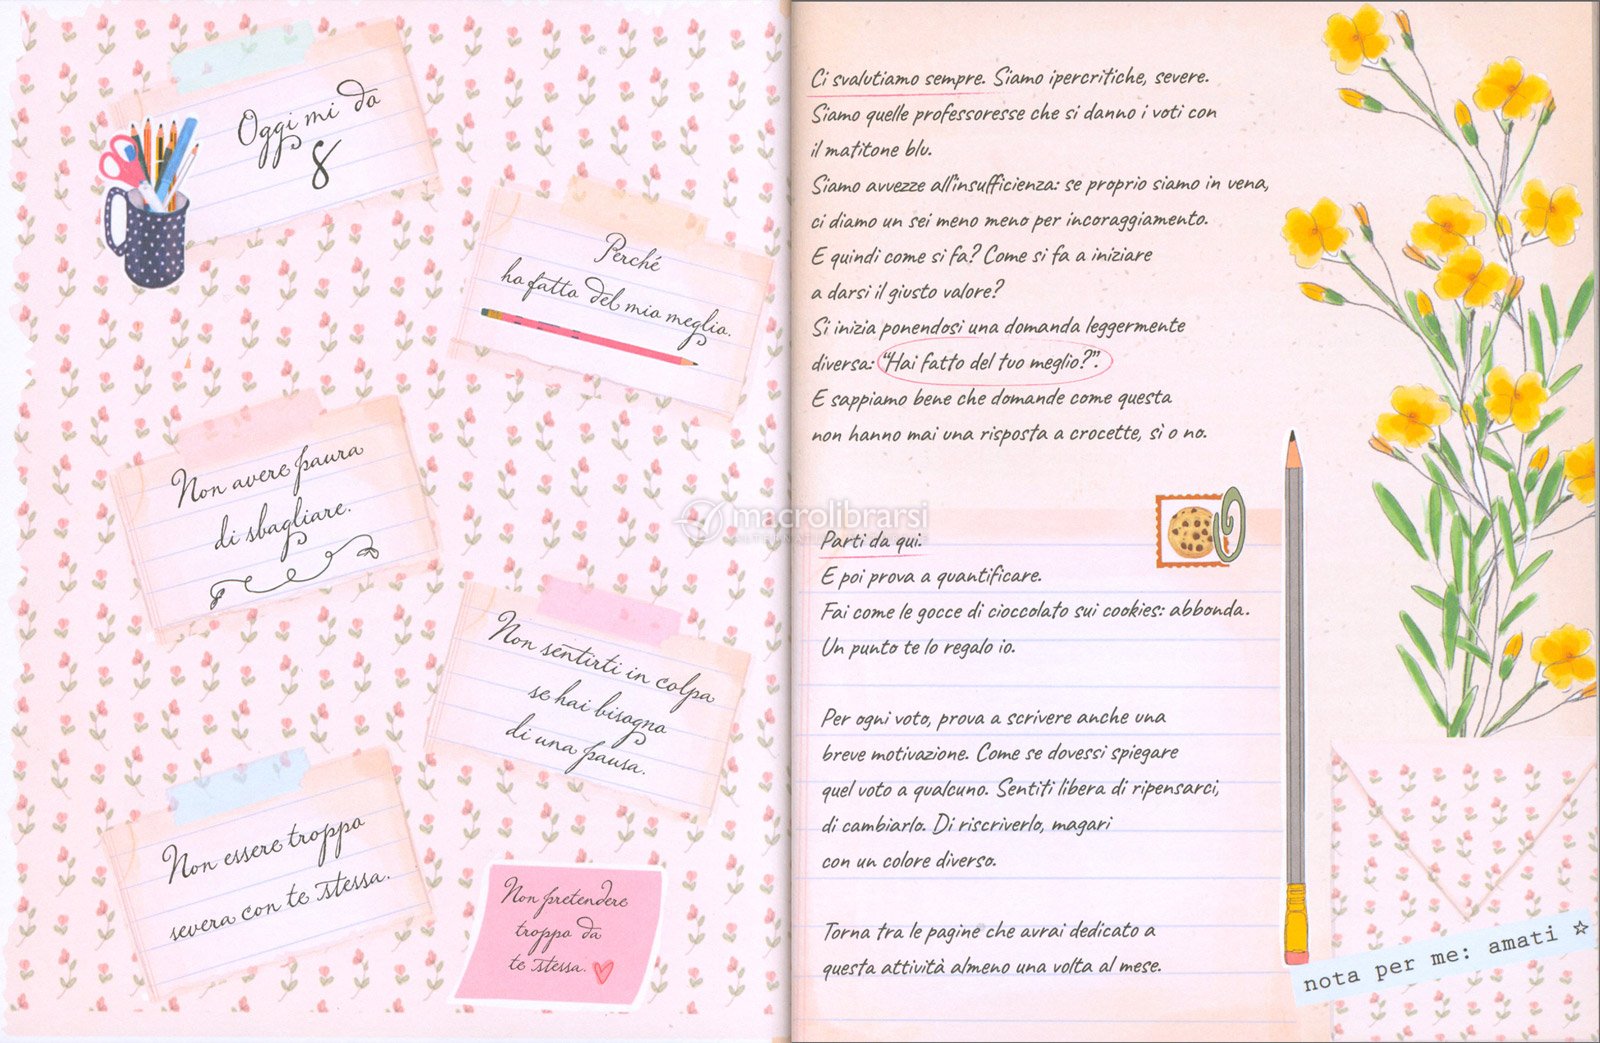 Oggi mi do
8
Perché
ho fatto del mio meglio.
Non avere paura
di sbagliare.
Non sentirti in colpa
se hai bisogno
di una pausa.
Non essere troppo
severa con te stessa.
Non pretendere
troppo da
te stessa.
Ci svalutiamo sempre. Siamo ipercritiche, severe.
Siamo quelle professoresse che si danno i voti con
il matitone blu.
Siamo avvezze all'insufficienza: se proprio siamo in vena,
ci diamo un sei meno meno per incoraggiamento.
E quindi come si fa? Come si fa a iniziare
a darsi il giusto valore?
Si inizia ponendosi una domanda leggermente
diversa: "Hai fatto del tuo meglio?".
E sappiamo bene che domande come questa
non hanno mai una risposta a crocette, sì o no.
macrolibrarsi
Parti da qui.
E poi prova a quantificare.
Fai come le gocce di cioccolato sui cookies: abbonda.
Un punto te lo regalo io.
Per ogni voto, prova a scrivere anche una
breve motivazione. Come se dovessi spiegare
quel voto a qualcuno. Sentiti libera di ripensarci,
di cambiarlo. Di riscriverlo, magari
con un colore diverso.
Torna tra le pagine che avrai dedicato a
questa attività almeno una volta al mese.
nota per me: amati ☆